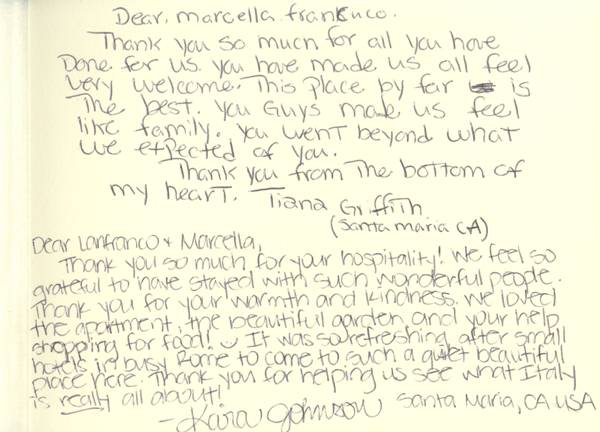 Dear, marcella frankuco.
Thank you so much for all you have
Done for us. you have made us all feel
very welcome. This place by far is
The best. you Guys made us feel
like family. you went beyond what
we expected of you.
Thank you from The bottom of
my heart. Tiana Griffith
(Santa maria CA)
Dear Lanfranco + Marcella,
Thank you so much for your hospitality! We feel so
grateful to have stayed with such wonderful people.
Thank you for your warmth and kindness. We loved
the apartment, the beautiful garden and your help
shopping for food! It was so refreshing after small
hotels in busy Rome to come to such a quiet beautiful
place here. Thank you for helping us see what Italy
is really all about!
- Kara Johnson Santa Maria, CA USA